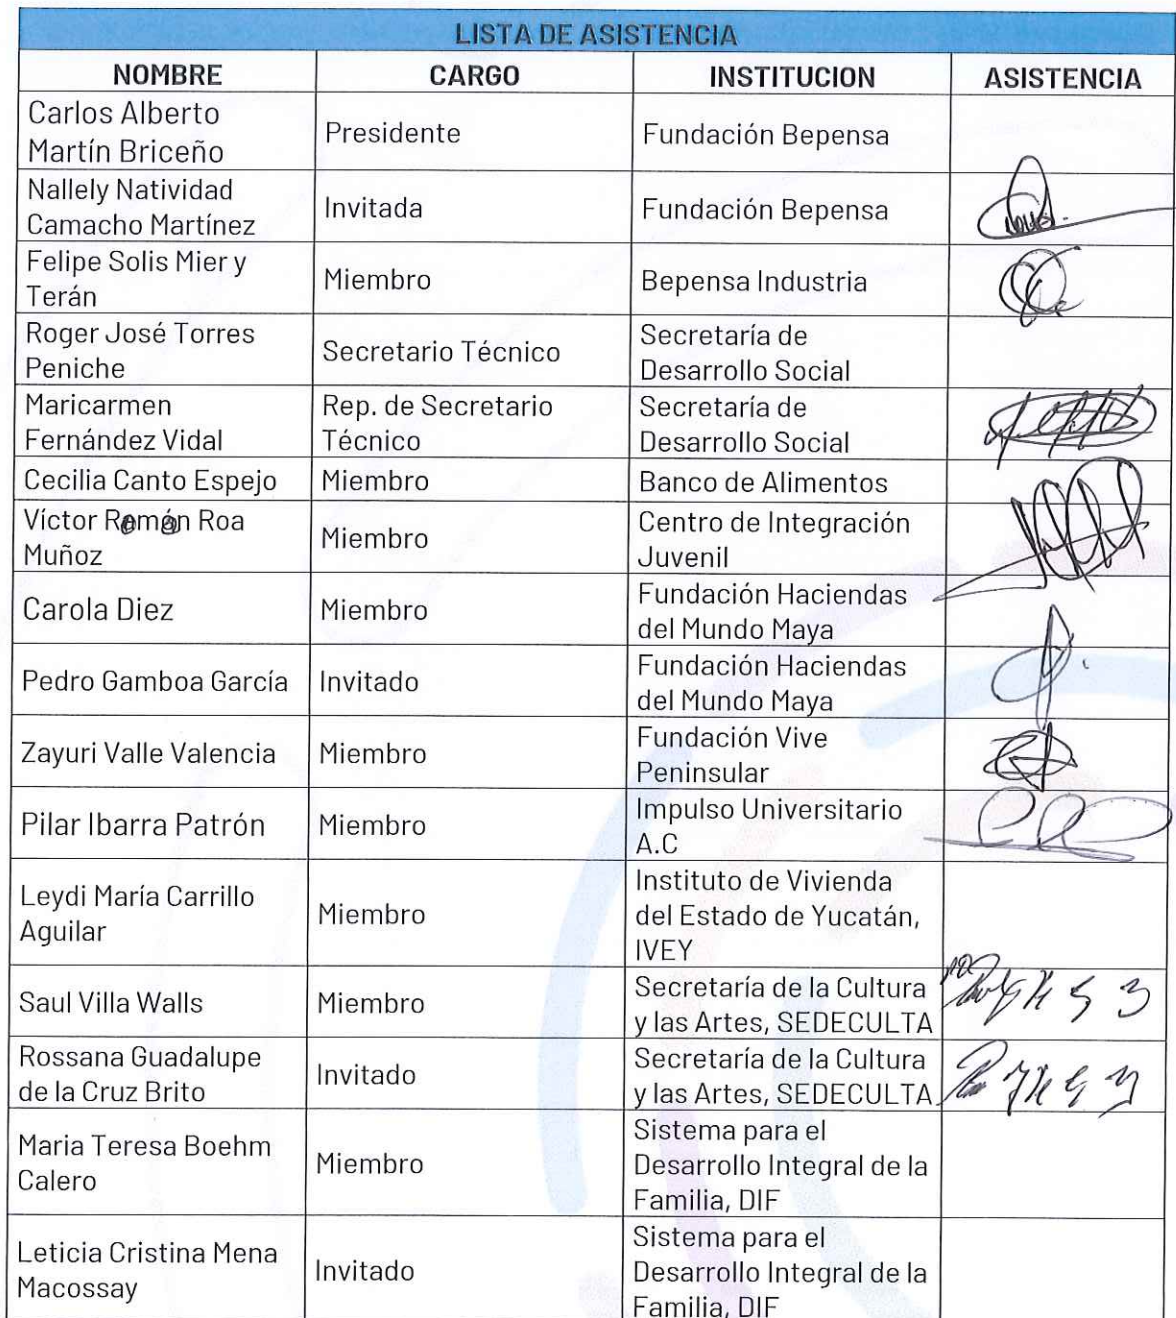 LISTA DE ASISTENCIA
NOMBRE CARGO INSTITUCION ASISTENCIA
Carlos Alberto
Martín Briceño
Presidente
Fundación Bepensa
Nallely Natividad
Camacho Martínez
Invitada
Fundación Bepensa
Felipe Solis Mier y
Terán
Miembro
Bepensa Industria
Roger José Torres
Peniche
Secretario Técnico
Secretaría de
Desarrollo Social
Maricarmen
Fernández Vidal
Rep. de Secretario
Técnico
Secretaría de
Desarrollo Social
Cecilia Canto Espejo
Miembro
Banco de Alimentos
Víctor Roa
Muñoz
Miembro
Centro de Integración
Juvenil
Carola Diez
Miembro
Fundación Haciendas
del Mundo Maya
Pedro Gamboa García
Invitado
Fundación Haciendas
del Mundo Maya
Zayuri Valle Valencia
Miembro
Fundación Vive
Peninsular
Pilar Ibarra Patrón
Miembro
Impulso Universitario
A.C
Leydi María Carrillo
Aguilar
Miembro
Instituto de Vivienda
del Estado de Yucatán,
IVEY
Saul Villa Walls
Miembro
Secretaría de la Cultura
y las Artes, SEDECULTA
Rossana Guadalupe
de la Cruz Brito
Invitado
Secretaría de la Cultura
y las Artes, SEDECULTA
Maria Teresa Boehm
Calero
Miembro
Sistema para el
Desarrollo Integral de la
Familia, DIF
Leticia Cristina Mena
Macossay
Invitado
Sistema para el
Desarrollo Integral de la
Familia, DIF